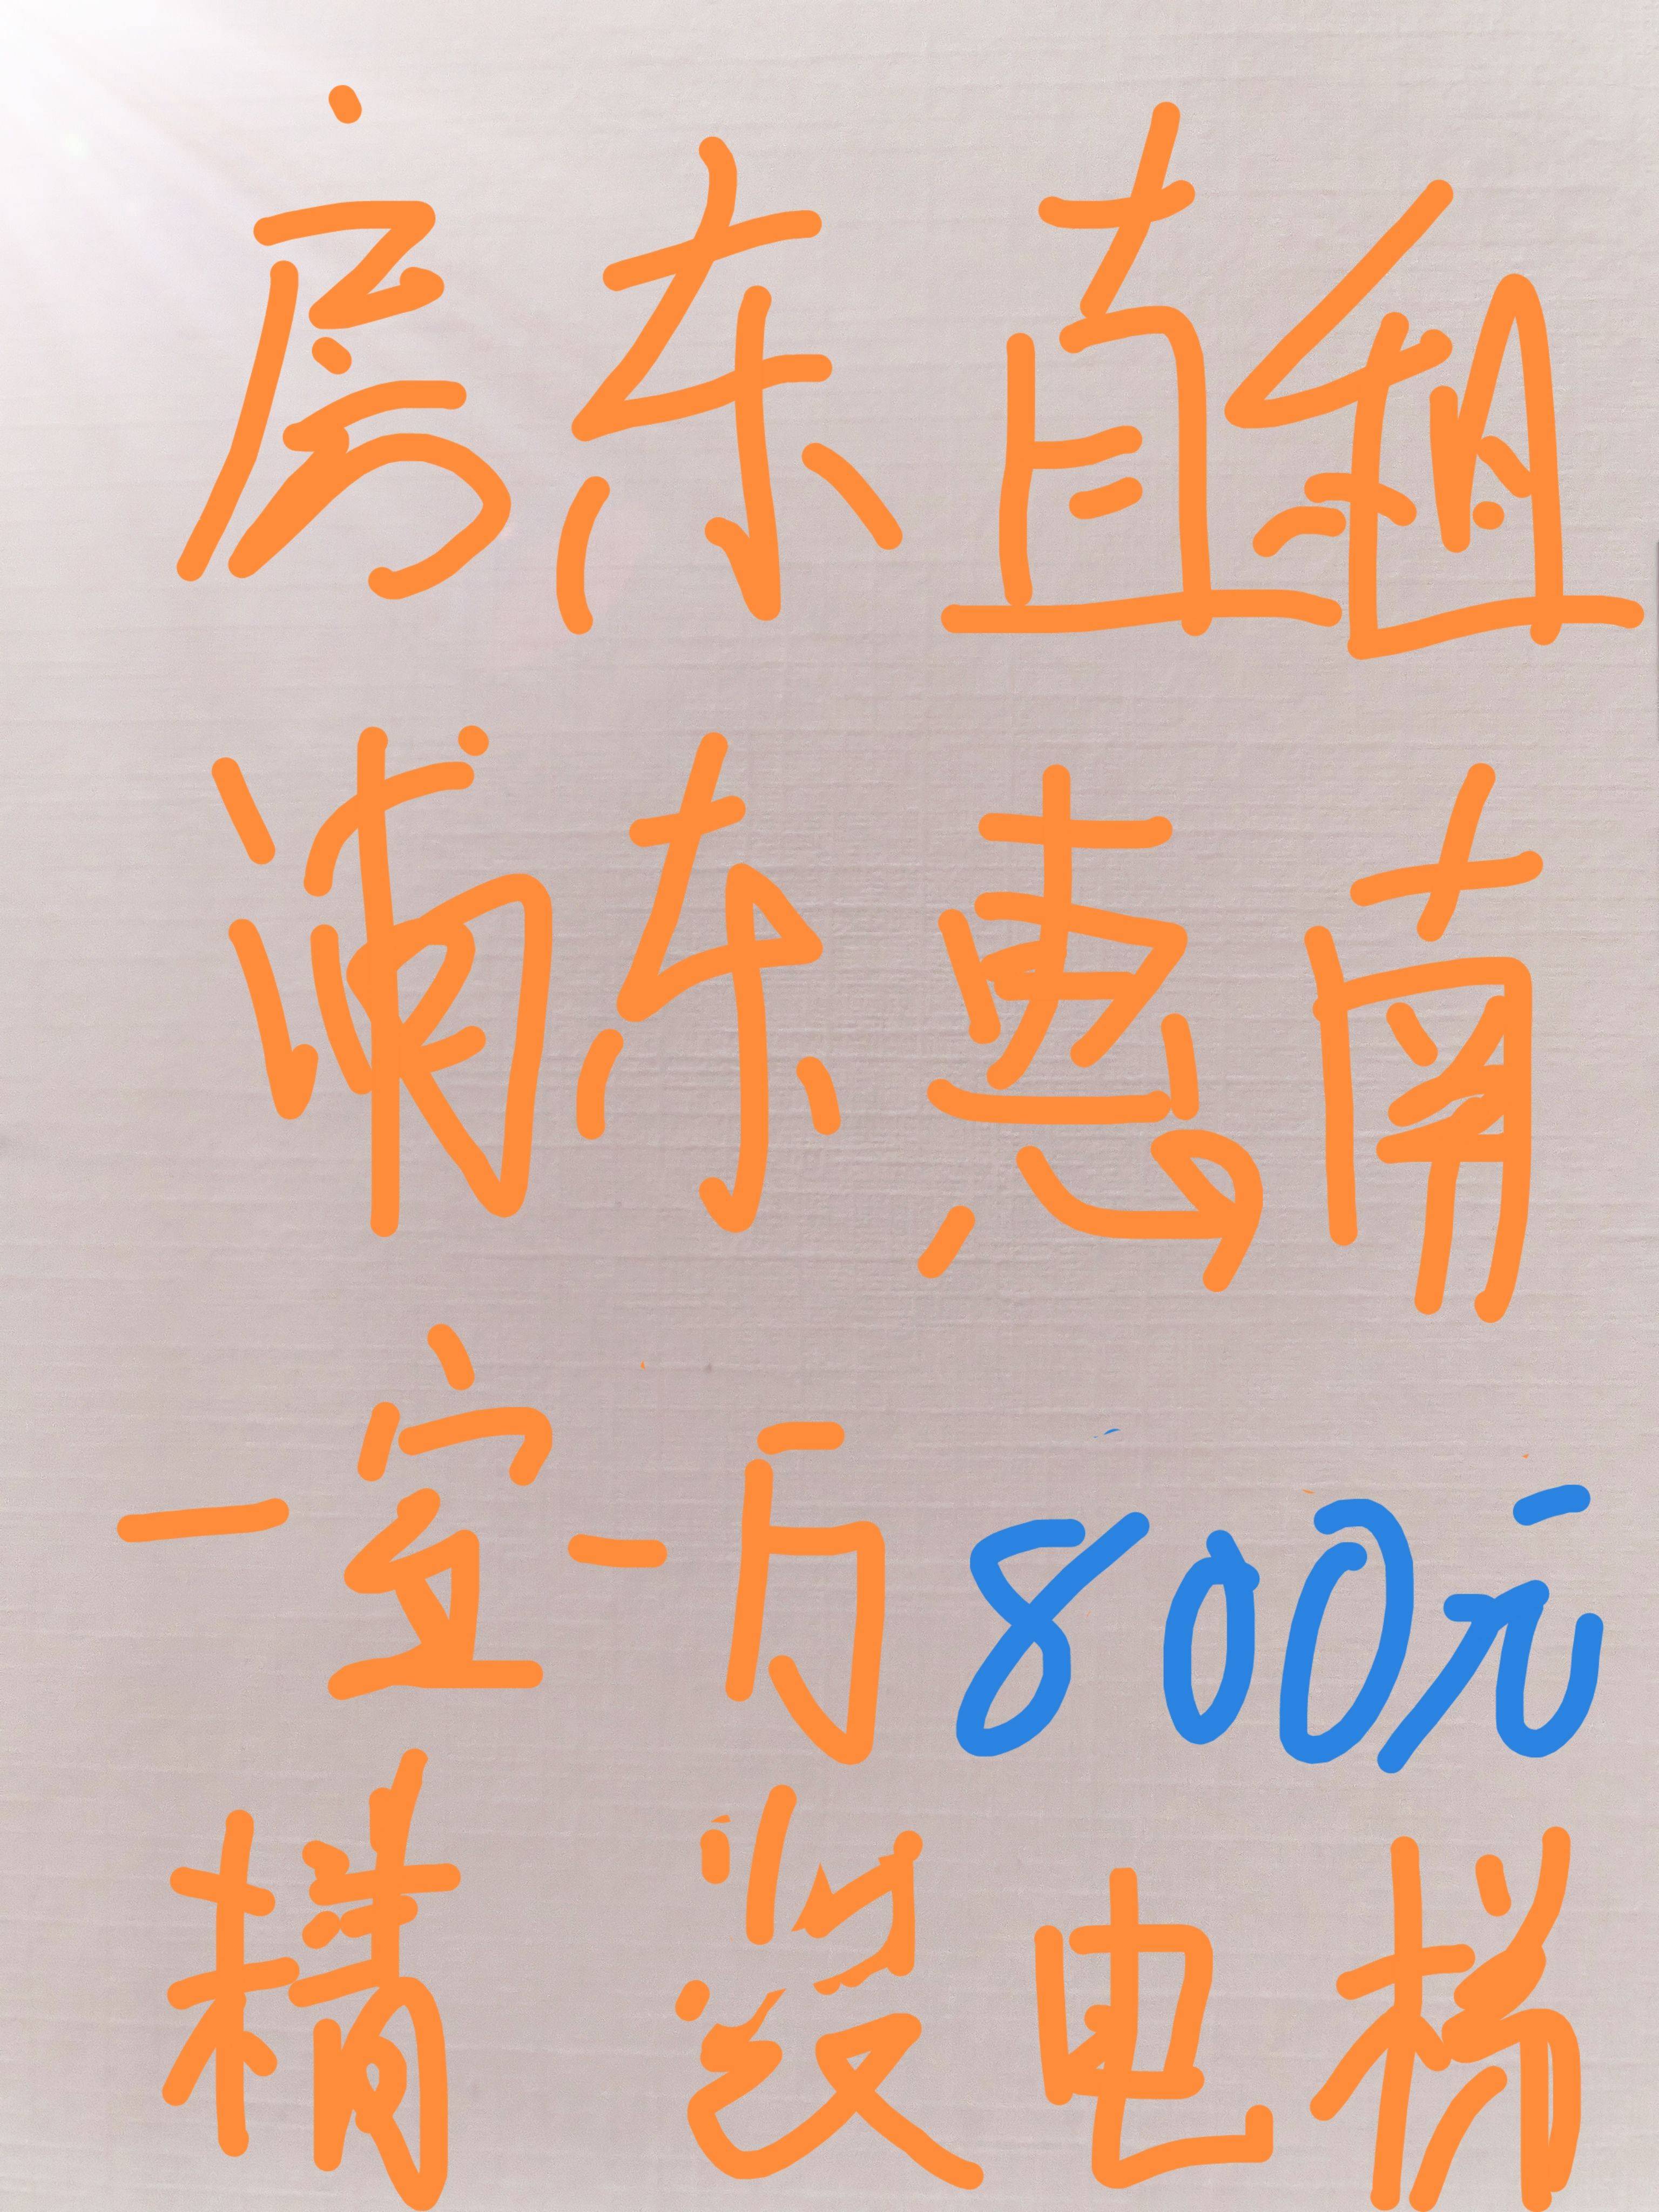 房东直租
浦东惠南
一室一厅800元
精装电梯